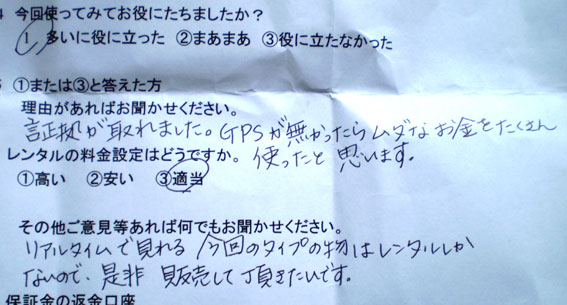 4 今回使ってみてお役にたちましたか？
① 多いに役に立った ②まあまあ ③役に立たなかった
5 ①または③と答えた方
理由があればお聞かせください。
証拠が取れました。GPSが無かったらムダなお金をたくさん
レンタルの料金設定はどうですか。 使ったと思います。
①高い ②安い ③適当
その他ご意見等あれば何でもお聞かせください。
リアルタイムで見れる今回のタイプの物はレンタルしか
ないので、是非販売して頂きたいです。
保証金の返金口座